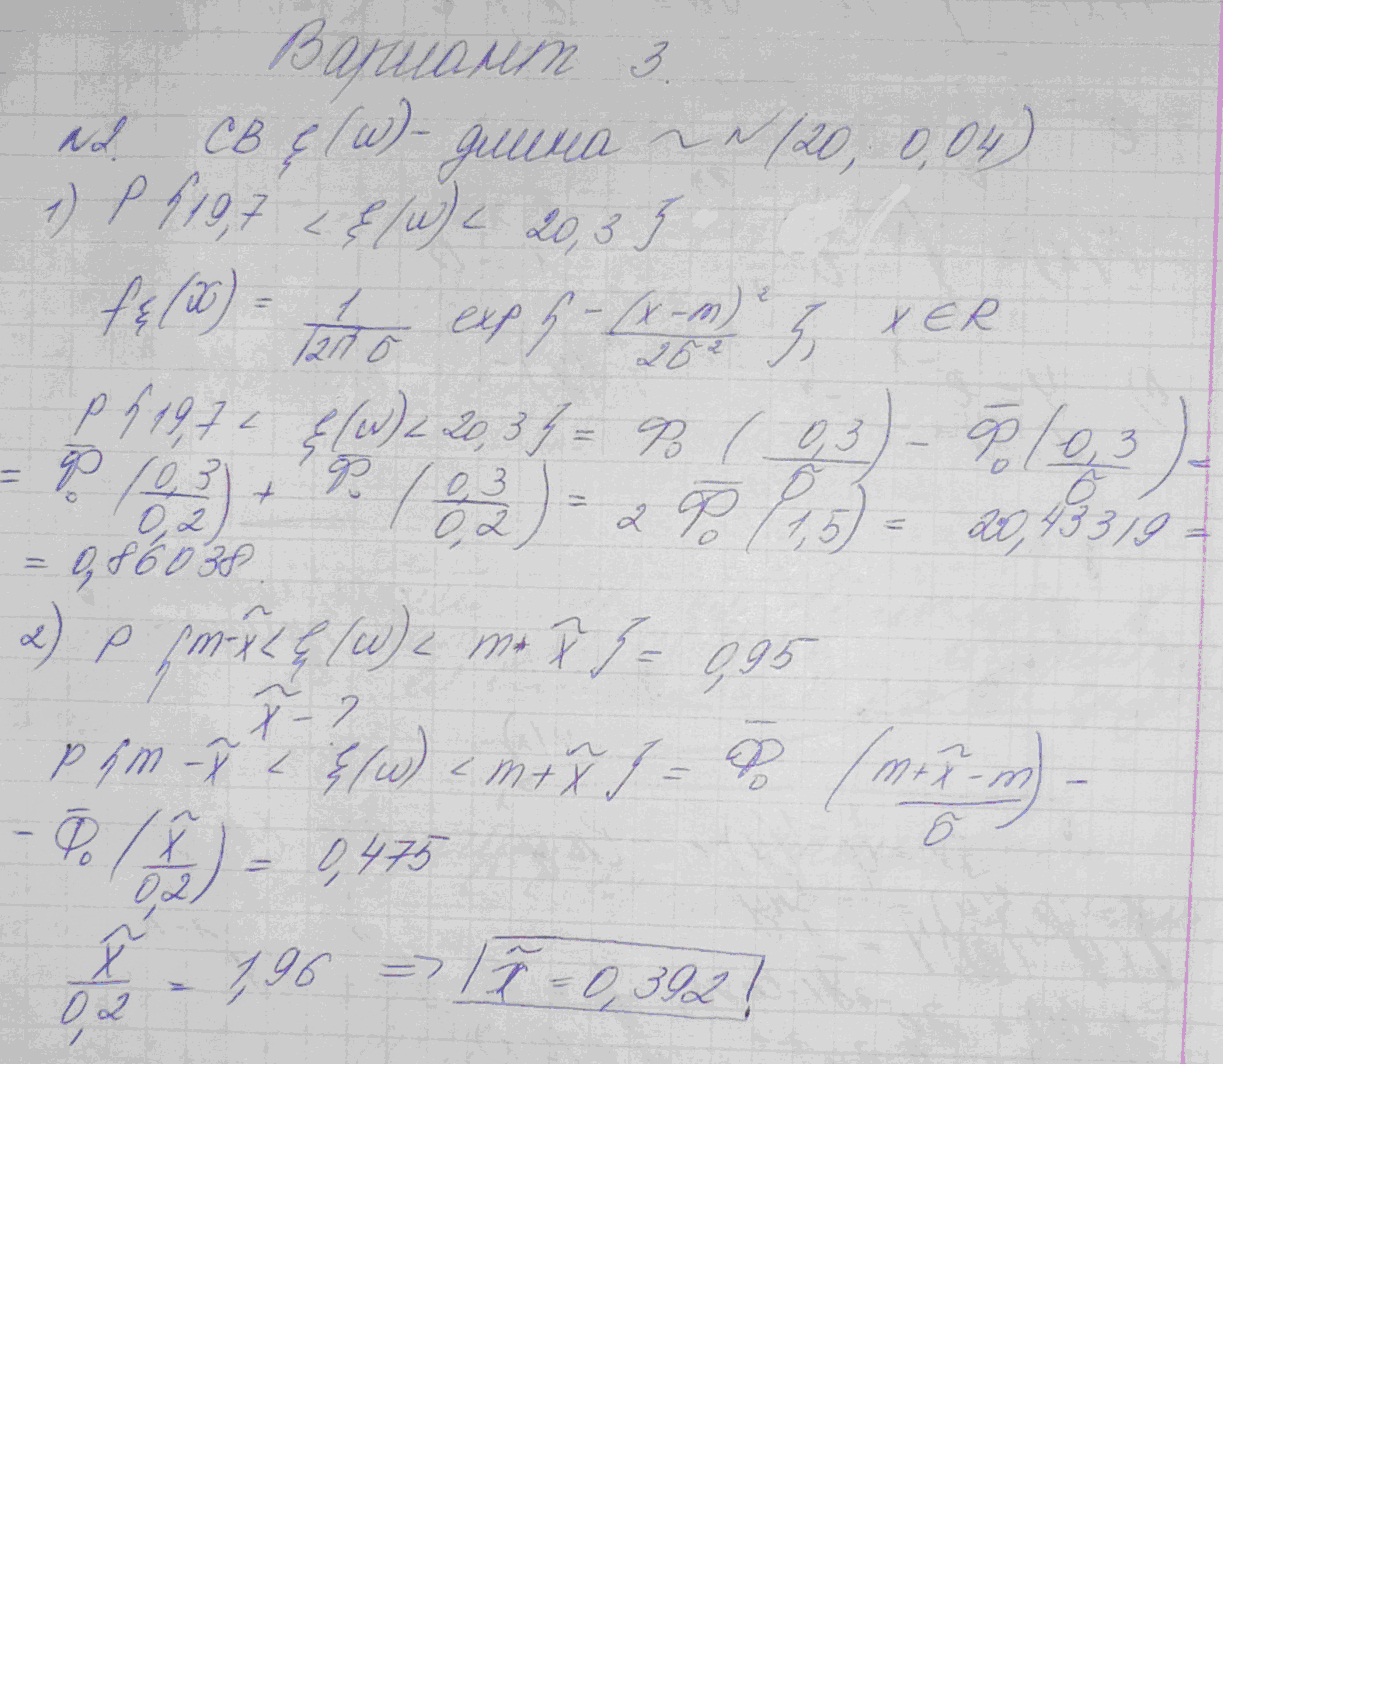 Вариант 3.
№2. СВ ξ(ω) - длина ~ N(20; 0,04)
1) P{19,7 < ξ(ω) < 20,3}
fξ(x) = 1/(√2π σ) exp{-(x-m)²/2σ²}, x ∈ R
P{19,7 < ξ(ω) < 20,3} = Φ₀(0,3/σ) - Φ̄₀(0,3/σ) =
= Φ̄₀(0,3/0,2) + Φ̄₀(0,3/0,2) = 2Φ̄₀(1,5) = 20,43319 =
= 0,86038.
2) P{m-x̃ < ξ(ω) < m+x̃} = 0,95
x̃ - ?
P{m - x̃ < ξ(ω) < m + x̃} = Φ̄₀((m+x̃-m)/σ) -
- Φ̄₀(x̃/0,2) = 0,475
x̃/0,2 = 1,96 => x̃ = 0,392